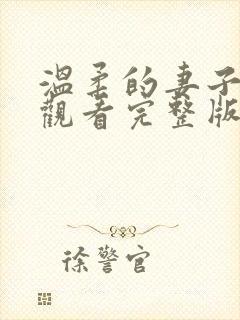 溫柔的妻子
觀看完整版
徐警官